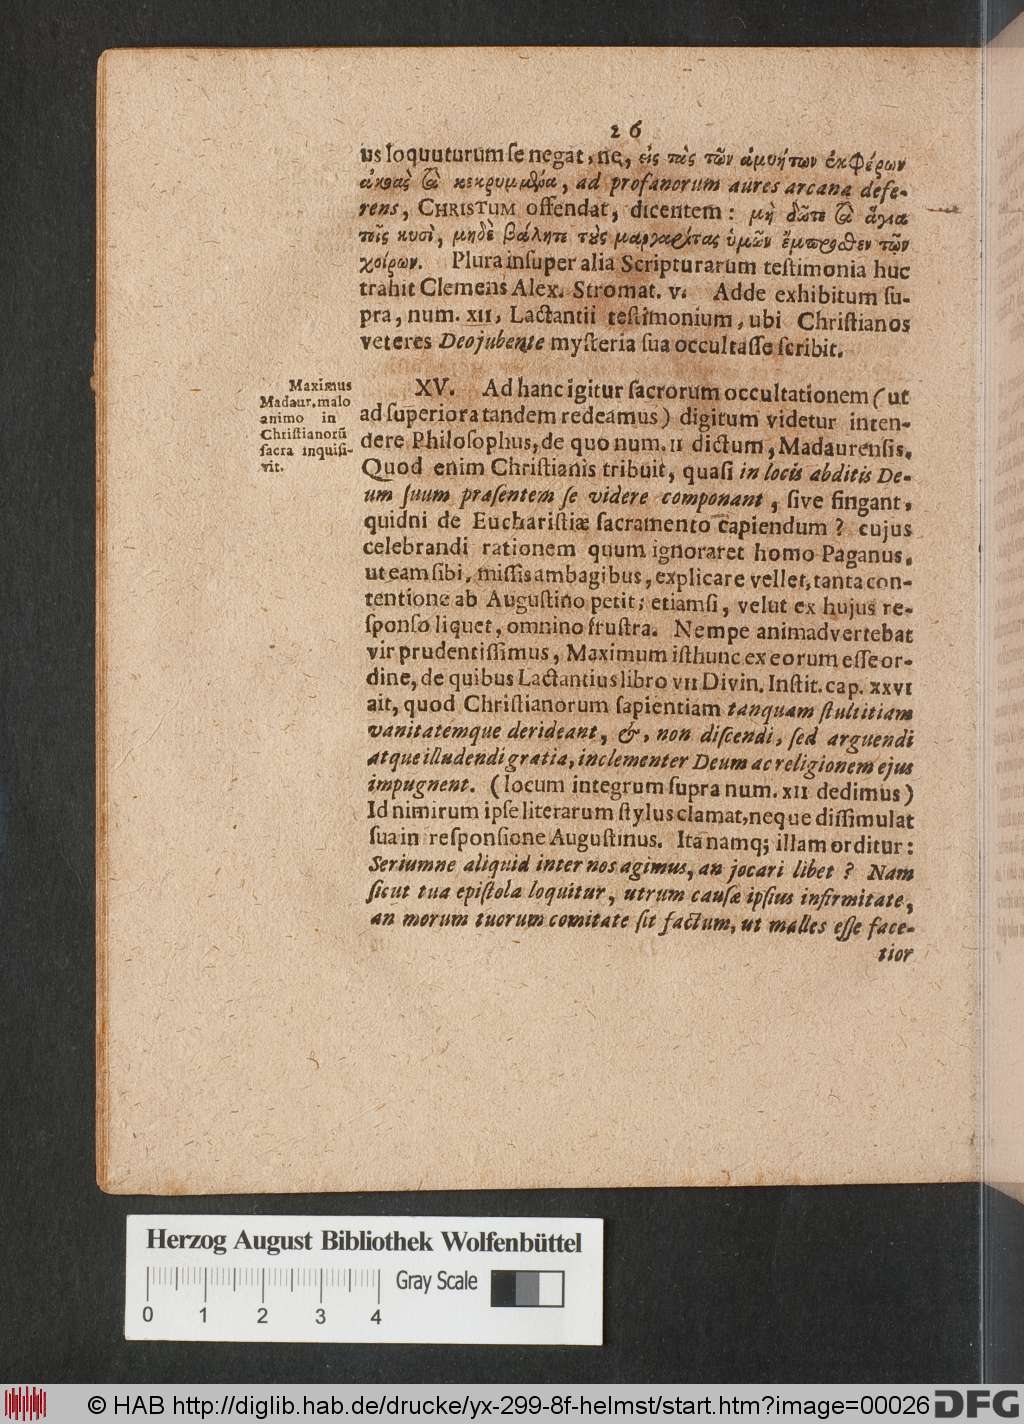 26
us loquuturum se negat, ne, εἰς τὰς τῶν ἀμυήτων ἐκφέρων
ἀκοὰς τὰ κεκρυμμένα, ad profanorum aures arcana defe-
rens, CHRISTUM offendat, dicentem: μὴ δῶτε τὰ ἅγια
τοῖς κυσὶ, μηδὲ βάλητε τοὺς μαργαρίτας ὑμῶν ἔμπροσθεν τῶν
χοίρων. Plura insuper alia Scripturarum teſtimonia huc
trahit Clemens Alex. Stromat. v. Adde exhibitum ſu-
pra, num. XII, Lactantii teſtimonium, ubi Chriſtianos
veteres Deo jubente myſteria ſua occultaſſe ſcribit.
Maximus
Madaur. malo
animo in
Chriſtianorū
ſacra inquiſi-
vit.
XV. Ad hanc igitur ſacrorum occultationem (ut
ad ſuperiora tandem redeamus) digitum videtur inten-
dere Philoſophus, de quo num. II dictum, Madaurenſis.
Quod enim Chriſtianis tribuit, quaſi in locis abditis De-
um ſuum præſentem ſe videre componant, ſive fingant,
quidni de Euchariſtiæ ſacramento capiendum? cujus
celebrandi rationem quum ignoraret homo Paganus,
ut eam ſibi, miſſis ambagibus, explicare vellet, tanta con-
tentione ab Auguſtino petit; etiamſi, velut ex hujus re-
ſponſo liquet, omnino fruſtra. Nempe animadvertebat
vir prudentiſſimus, Maximum iſthunc ex eorum eſſe or-
dine, de quibus Lactantius libro VII Divin. Inſtit. cap. XXVI
ait, quod Chriſtianorum ſapientiam tanquam ſtultitiam
vanitatemque derideant, &, non diſcendi, ſed arguendi
atque illudendi gratia, inclementer Deum ac religionem ejus
impugnent. (locum integrum ſupra num. XII dedimus)
Id nimirum ipſe literarum ſtylus clamat, neque diſſimulat
ſua in reſponſione Auguſtinus. Ita namq; illam orditur:
Seriumne aliquid inter nos agimus, an jocari libet? Nam
ſicut tua epiſtola loquitur, utrum cauſæ ipſius infirmitate,
an morum tuorum comitate ſit factum, ut malles eſſe face-
tior
Herzog August Bibliothek Wolfenbüttel
Gray Scale
0 1 2 3 4
© HAB http://diglib.hab.de/drucke/yx-299-8f-helmst/start.htm?image=00026
DFG